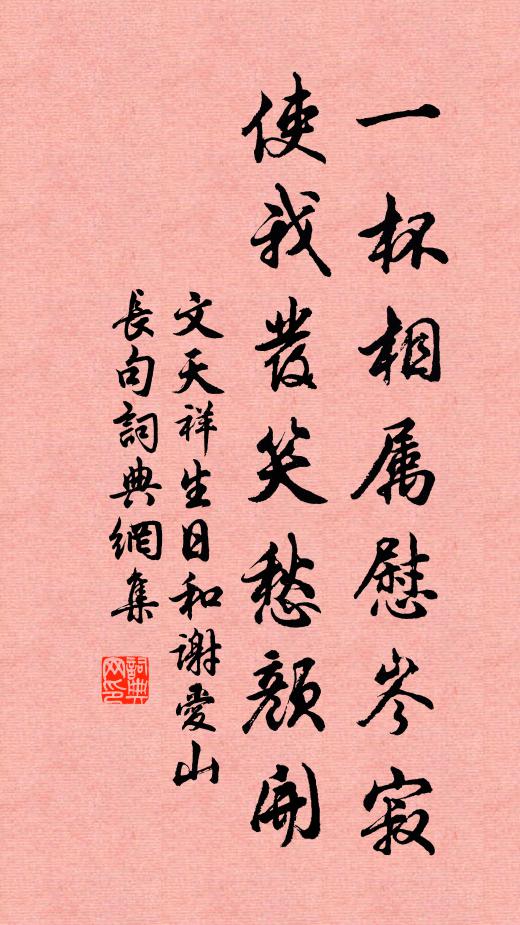 一杯相属慰岑寂
使我發笑愁顏開
文天祥生日和谢爱山
長句詞典網集
詞典网印